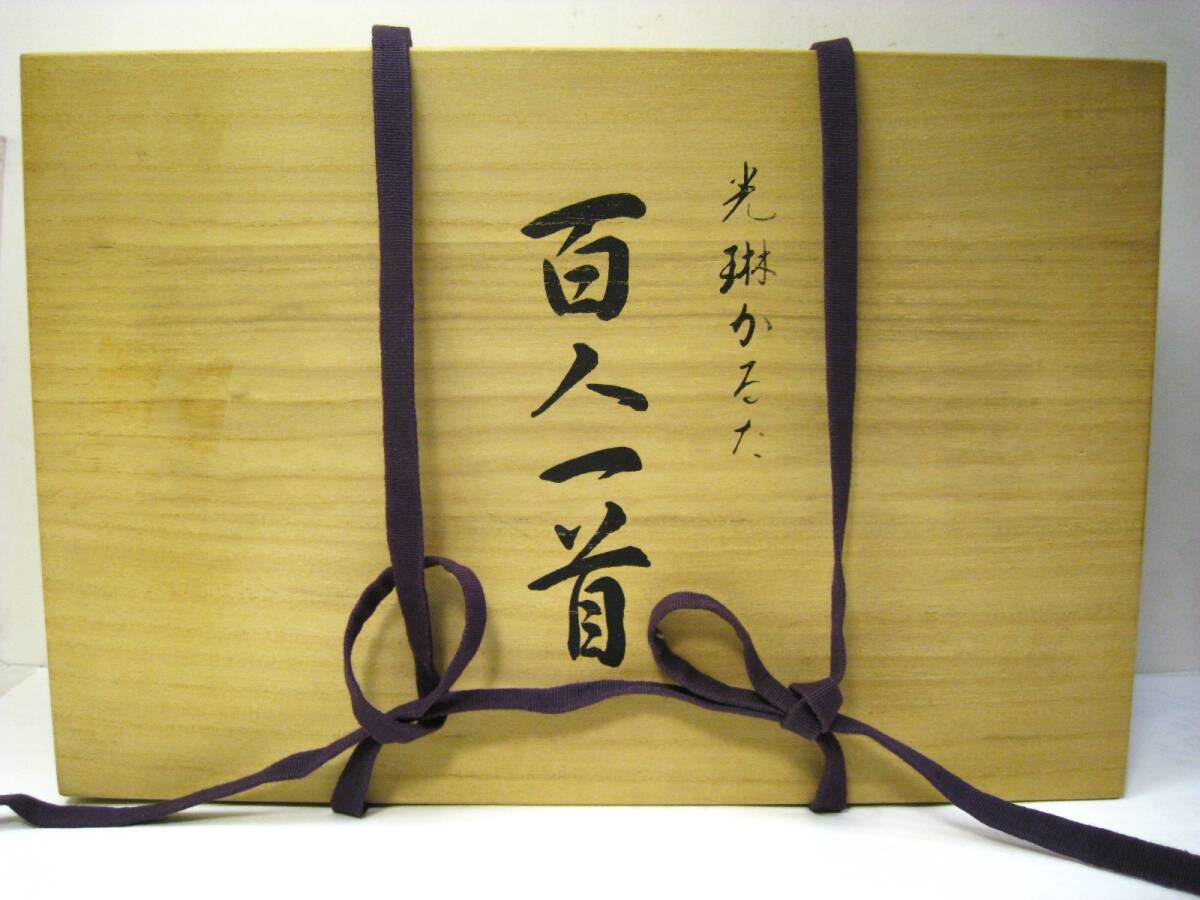 光琳かるた
百人一首